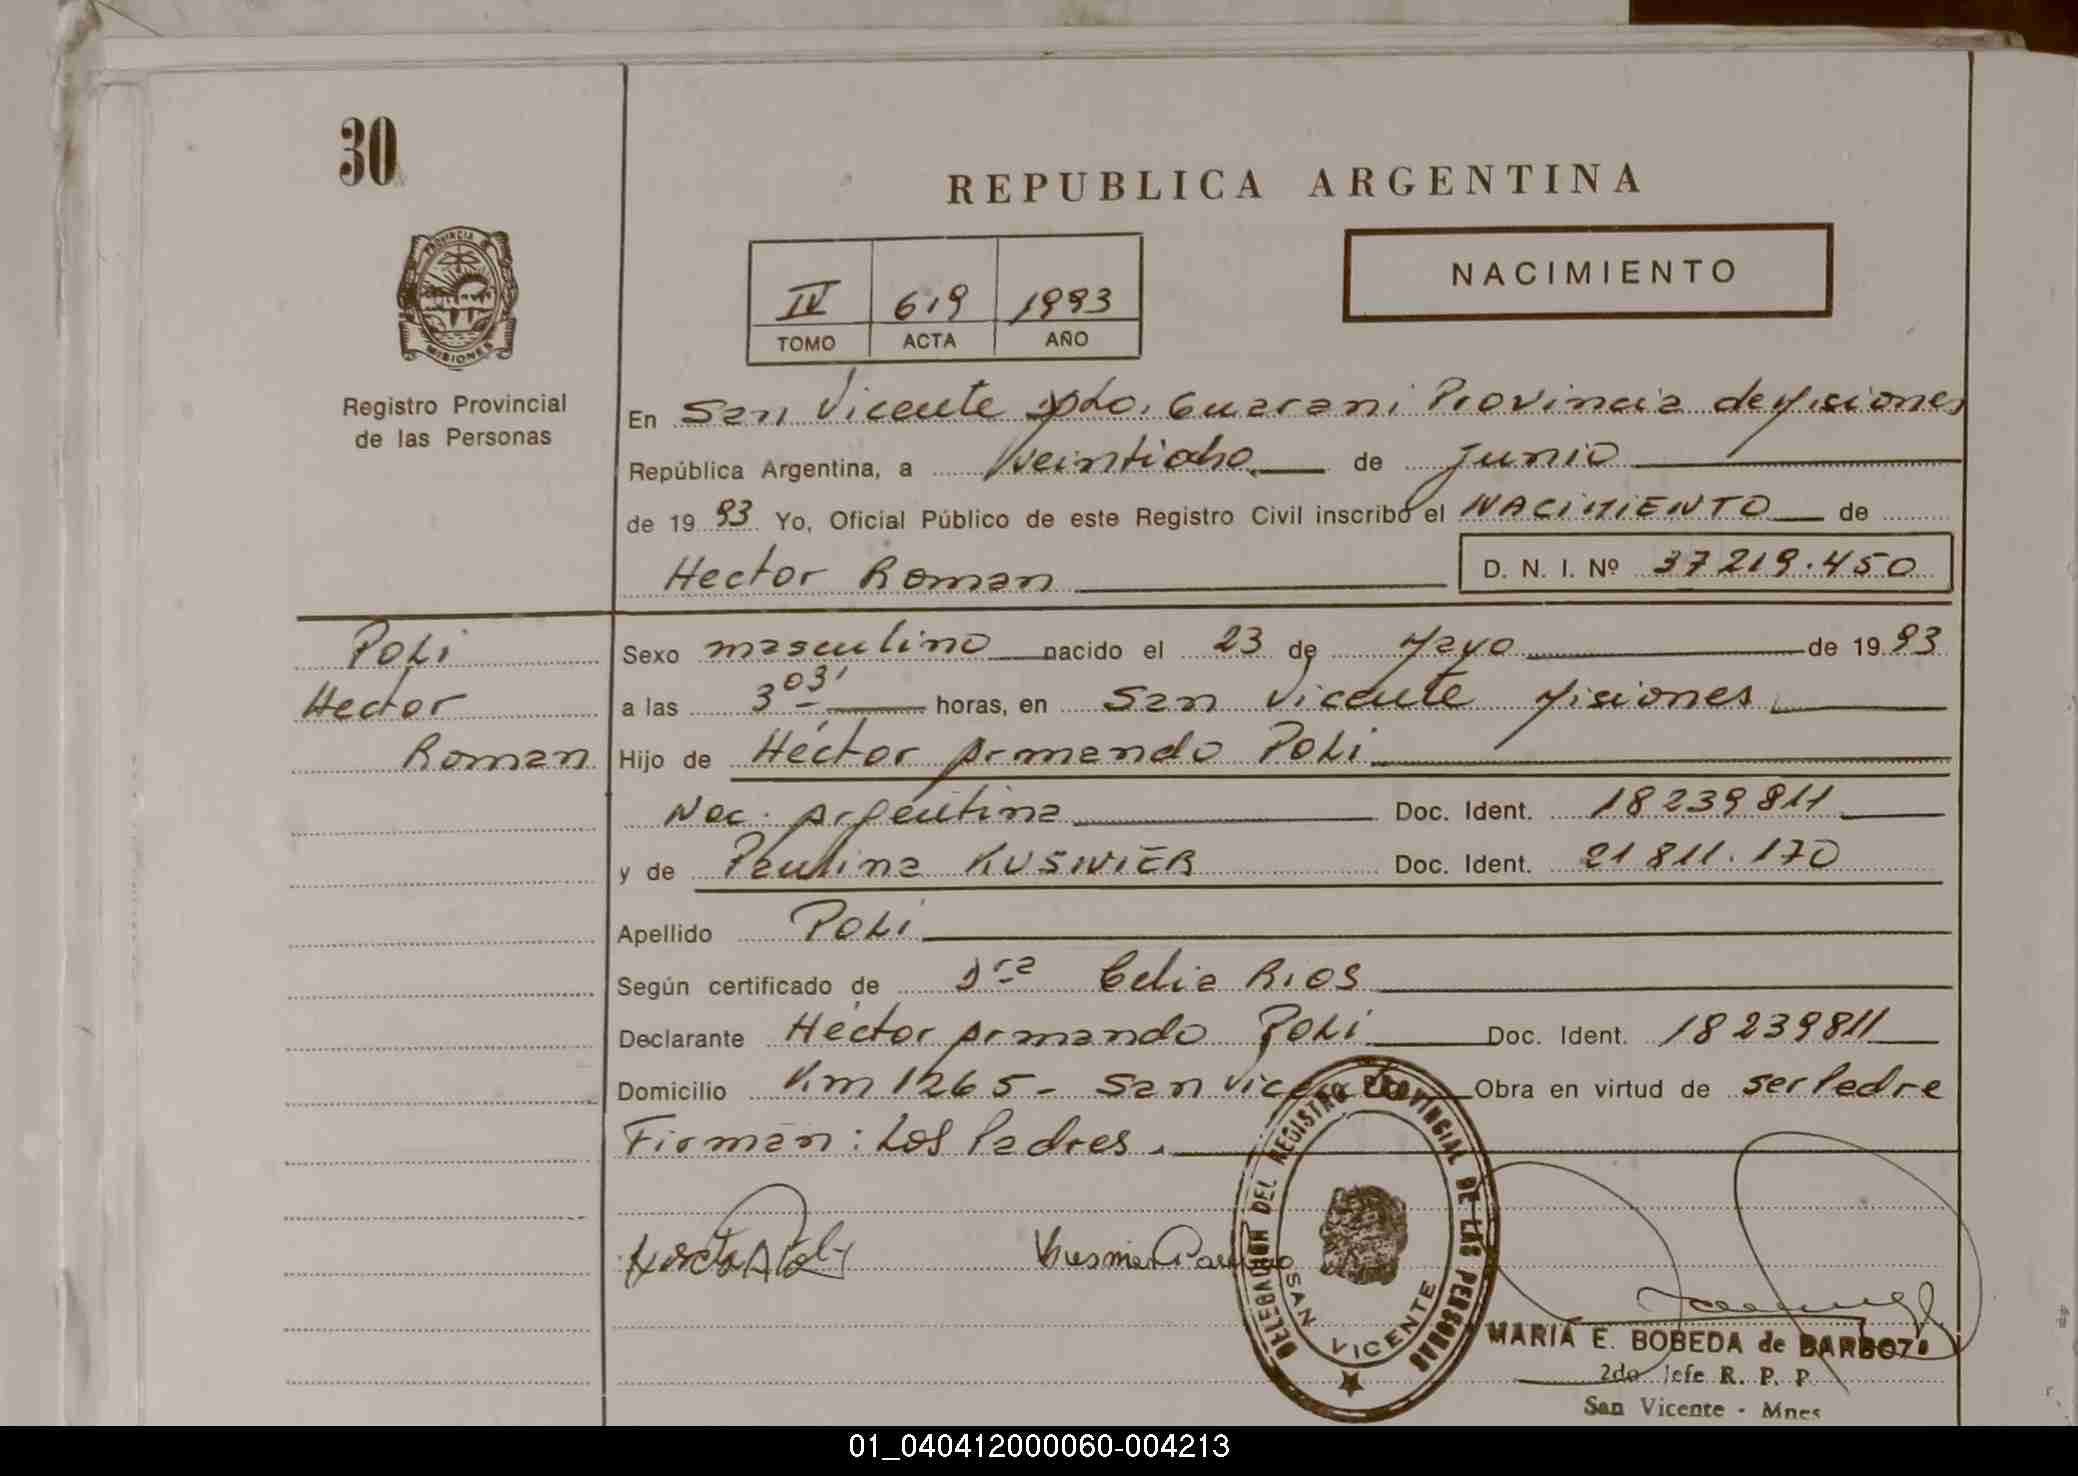 30
REPUBLICA ARGENTINA
PROVINCIA DE
MISIONES
NACIMIENTO
IV 619 1993
TOMO ACTA AÑO
Registro Provincial
de las Personas
En San Vicente Dpto. Guarani Provincia de Misiones
República Argentina, a Veintiocho de Junio
de 1993 Yo, Oficial Público de este Registro Civil inscribo el NACIMIENTO de
Hector Roman D. N. I. Nº 37219.450
Poli
Hector
Roman
Sexo masculino nacido el 23 de Mayo de 1993
a las 3 03' horas, en San Vicente Misiones
Hijo de Héctor Armando Poli
Nac. Argentina Doc. Ident. 18239811
y de Paulina KUSNIER Doc. Ident. 21811.170
Apellido Poli
Según certificado de Dra Celia Rios
Declarante Héctor Armando Poli Doc. Ident. 18239811
Domicilio Km 1265 - San Vicente Obra en virtud de ser Padre
Firman: Los Padres.
DELEGACION DEL REGISTRO PROVINCIAL DE LAS PERSONAS
SAN VICENTE
MARIA E. BOBEDA de BARBOZA
2do Jefe R. P. P.
San Vicente - Mnes
01_040412000060-004213